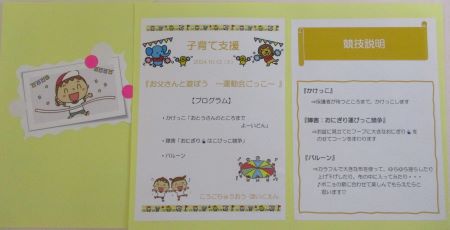 子育て支援
2024.10.12（土）
『お父さんと遊ぼう ～運動会ごっこ～ 』
【プログラム】
・かけっこ「おとうさんのところまで
よーいどん」
・障害「おにぎり🍙はこびっこ競争」
・バルーン
こうごうちゅうおう ほいくえん
競技説明
『かけっこ』
⇒保護者が待つところまで、かけっこします
『障害：おにぎり運びっこ競争』
⇒お皿に見立てたフープに大きなおにぎり🍙を
のせてコーンをまわります
『バルーン』
⇒カラフルで大きな布を使って、ゆらゆら揺らしたり
上げ下げしたり、布の中に入ってみたり・・・
♪ポニョの歌に合わせて楽しんでもらえたらと
思います♡